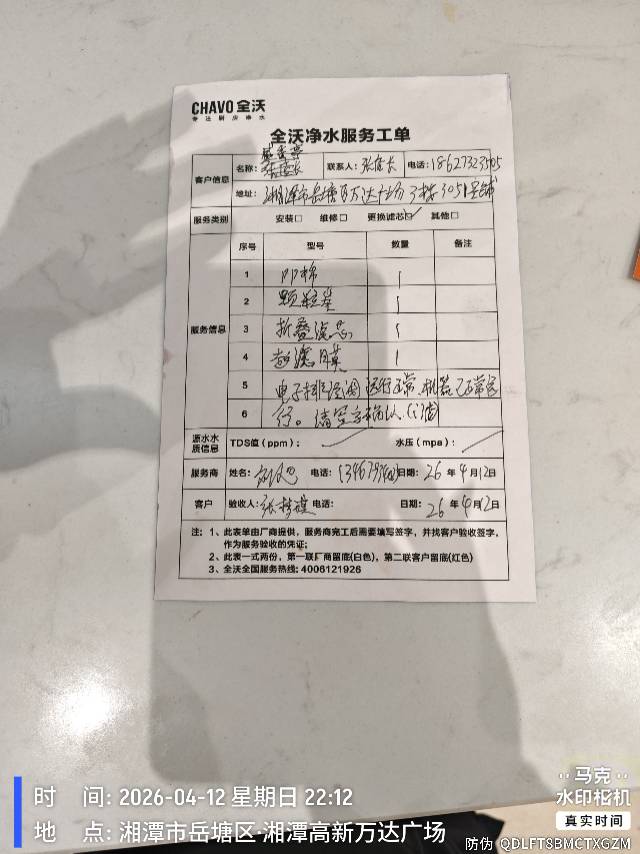 CHAVO 全沃
专注厨房净水
全沃净水服务工单
客户信息 名称: 联系人: 张店长 电话: 18627323505
地址: 湘潭市岳塘区万达广场3栋3051号铺
服务类别 安装□ 维修□ 更换滤芯☑ 其他□
服务信息 序号 型号 数量 备注
1 PP棉 1
2 颗粒炭 1
3 折叠滤芯 1
4 超滤膜 1
5 电子排阀运行正常,机器已正常运
6 行。请签字确认
源水水质信息 TDS值(ppm): 水压(mpa):
服务商 姓名: 电话: 日期: 26年4月12日
客户 验收人: 电话: 日期: 26年4月12日
注: 1、此表单由厂商提供,服务商完工后需要填写签字,并找客户验收签字,
作为服务验收的凭证;
2、此表一式两份,第一联厂商留底(白色),第二联客户留底(红色)
3、全沃全国服务热线: 4006121926
马克
水印相机
真实时间
时 间: 2026-04-12 星期日 22:12
地 点: 湘潭市岳塘区·湘潭高新万达广场
防伪 QDLFT8BMCTXGZM